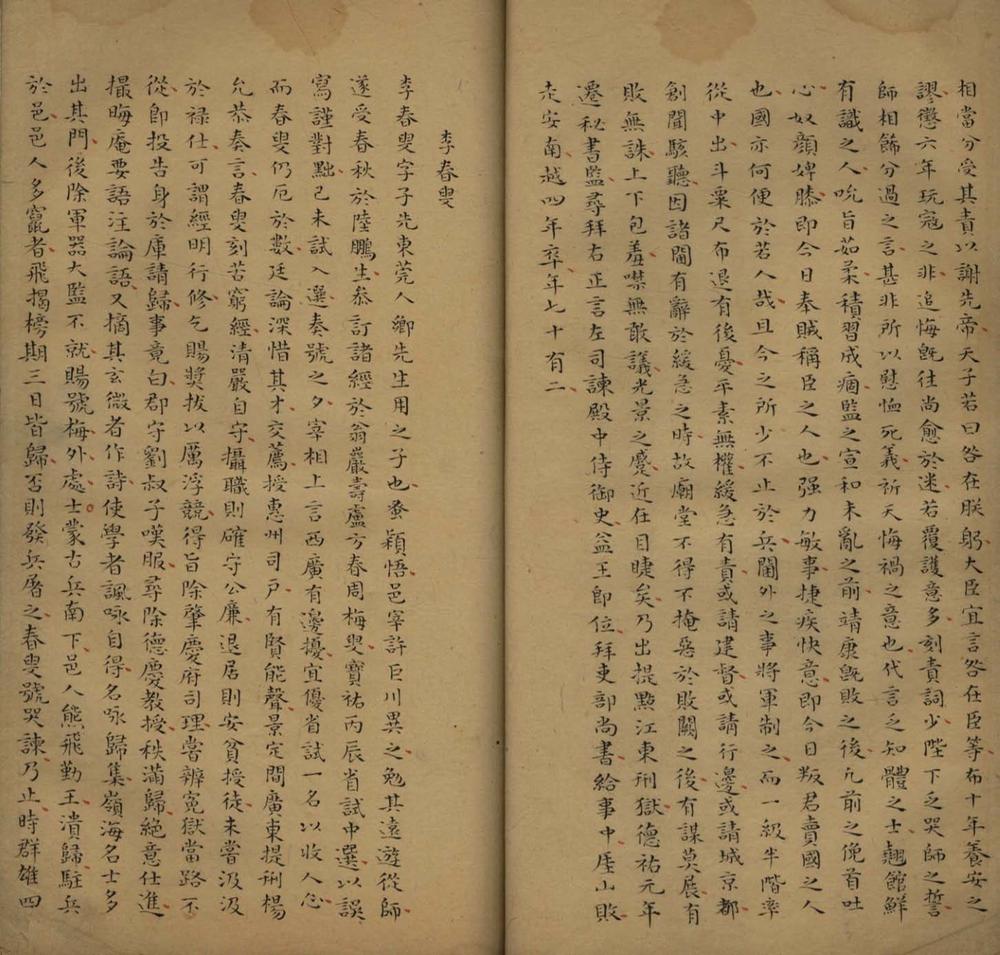 相當分受其責以謝先帝天子若曰咎在朕躬大臣宜言咎在臣等布十年養安之
謬懲六年玩寇之非追悔既往尚愈於迷若覆護意多刻責詞少陛下乏哭師之誓
師相飾分過之言甚非所以慰恤死義祈天悔禍之意也代言乏知體之士翹館鮮
有識之人吮旨茹柔積習成痼監之宣和未亂之前靖康既敗之後凡前之俛首吐
心奴顏婢膝即今日奉賊稱臣之人也强力敏事捷疾快意即今日叛君賣國之人
也國亦何便於若人哉且今之所少不止於兵閫外之事將軍制之而一級半階率
從中出斗粟尺布退有後憂平素無權緩急有責或請建督或請行邊或請城京都
創聞駭聽因諸閫有辭於緩急之時故廟堂不得不掩惡於敗闕之後有謀莫展有
敗無誅上下包羞噤無敢議光景之蹙近在目睫矣乃出提點江東刑獄德祐元年
遷秘書監尋拜右正言左司諫殿中侍御史益王即位拜吏部尚書給事中厓山敗
走安南越四年卒年七十有二
李春叟
李春叟字子先東莞人鄉先生用之子也蚤穎悟邑宰許巨川異之勉其遠遊從師
遂受春秋於陸鵬生叅訂諸經於翁嚴壽盧方春周梅叟寶祐丙辰省試中選以誤
寫謹對黜己未試入選奏號之夕宰相上言西廣有邊擾宜優省試一名以收人心
而春叟仍厄於數廷論深惜其才交薦授惠州司戶有賢能聲景定間廣東提刑楊
允恭奏言春叟刻苦窮經清嚴自守攝職則確守公廉退居則安貧授徒未嘗汲汲
於禄仕可謂經明行修乞賜奬拔以厲浮競得旨除肇慶府司理嘗辨冤獄當路不
從即投告身於庫請歸事竟白郡守劉叔子嘆服尋除德慶教授秩滿歸絕意仕進
撮晦庵要語注論語又摘其玄微者作詩使學者諷咏自得名咏歸集嶺海名士多
出其門後除軍器大監不就賜號梅外處士蒙古兵南下邑人熊飛勤王潰歸駐兵
於邑邑人多竄者飛揭榜期三日皆歸否則發兵屠之春叟號哭諫乃止時群雄四